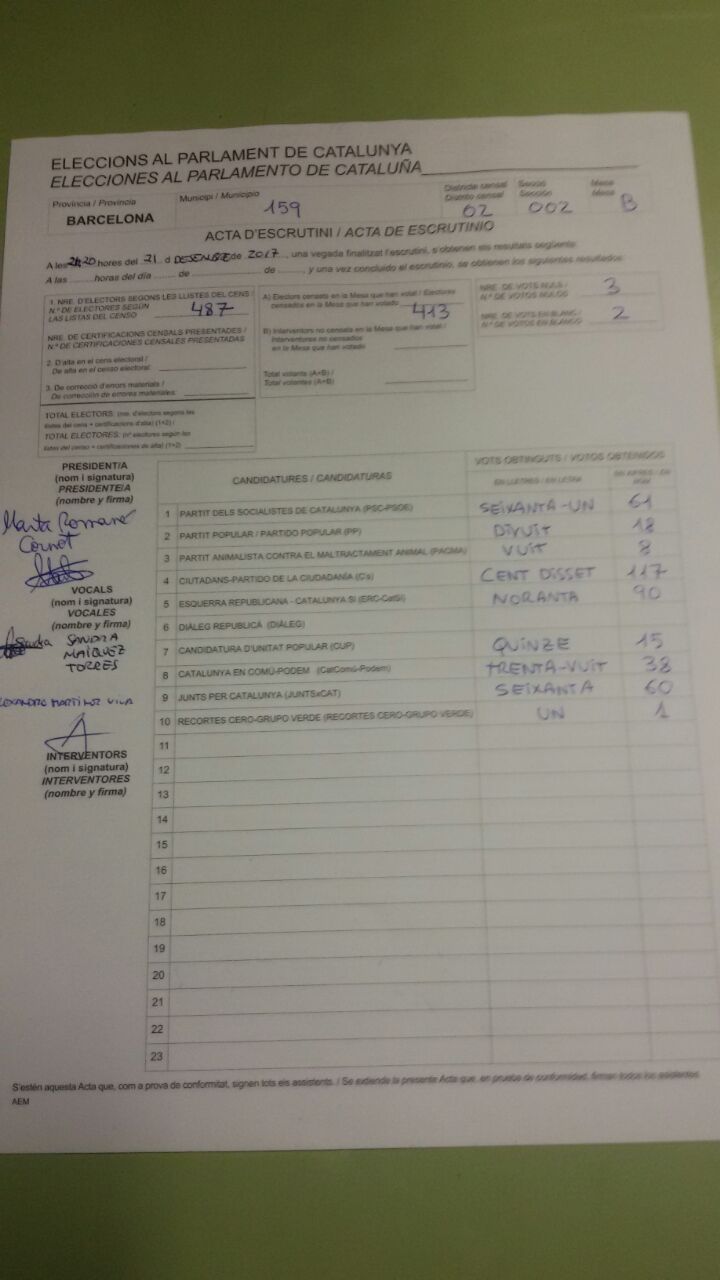 ELECCIONS AL PARLAMENT DE CATALUNYA
ELECCIONES AL PARLAMENTO DE CATALUÑA
Província / Provincia
BARCELONA
Municipi / Municipio
159
Districte censal
Distrito censal
02
Secció
Sección
002
Mesa
Mesa
B
ACTA D'ESCRUTINI / ACTA DE ESCRUTINIO
A les hores del 21 d DESEMBRE de 2017, una vegada finalitzat l'escrutini, s'obtenen els resultats següents:
A las ........ horas del día ........ de ........ de ........, y una vez concluido el escrutinio, se obtienen los siguientes resultados:
1. NRE. D'ELECTORS SEGONS LES LLISTES DEL CENS /
N.º DE ELECTORES SEGÚN
LAS LISTAS DEL CENSO 487
NRE. DE CERTIFICACIONS CENSALS PRESENTADES /
N.º DE CERTIFICACIONES CENSALES PRESENTADAS
2. D'alta en el cens electoral /
De alta en el censo electoral:
3. De correcció d'errors materials /
De corrección de errores materiales:
TOTAL ELECTORS: (nre. d'electors segons les
llistes del cens + certificacions d'alta) (1+2) /
TOTAL ELECTORES: (nº electores según las
listas del censo + certificaciones de alta) (1+2)
A) Electors censats en la Mesa que han votat / Electores
censados en la Mesa que han votado 413
B) Interventors no censats en la Mesa que han votat /
Interventores no censados
en la Mesa que han votado
Total votants (A+B) /
Total votantes (A+B)
NRE. DE VOTS NULS /
N.º DE VOTOS NULOS 3
NRE. DE VOTS EN BLANC /
N.º DE VOTOS EN BLANCO 2
PRESIDENT/A
(nom i signatura)
PRESIDENTE/A
(nombre y firma)
Marta Romano
Cornet
VOCALS
(nom i signatura)
VOCALES
(nombre y firma)
SANDRA
MAÍQUEZ
TORRES
MARTINEZ VILA
INTERVENTORS
(nom i signatura)
INTERVENTORES
(nombre y firma)
CANDIDATURES / CANDIDATURAS
VOTS OBTINGUTS / VOTOS OBTENIDOS
EN LLETRES / EN LETRA
EN XIFRES / EN NÚM.
1 PARTIT DELS SOCIALISTES DE CATALUNYA (PSC-PSOE) SEIXANTA-UN 61
2 PARTIT POPULAR / PARTIDO POPULAR (PP) DIVUIT 18
3 PARTIT ANIMALISTA CONTRA EL MALTRACTAMENT ANIMAL (PACMA) VUIT 8
4 CIUTADANS-PARTIDO DE LA CIUDADANÍA (C's) CENT DISSET 117
5 ESQUERRA REPUBLICANA - CATALUNYA SÍ (ERC-CatSí) NORANTA 90
6 DIÀLEG REPUBLICÀ (DIÀLEG)
7 CANDIDATURA D'UNITAT POPULAR (CUP) QUINZE 15
8 CATALUNYA EN COMÚ-PODEM (CatComú-Podem) TRENTA-VUIT 38
9 JUNTS PER CATALUNYA (JUNTSxCAT) SEIXANTA 60
10 RECORTES CERO-GRUPO VERDE (RECORTES CERO-GRUPO VERDE) UN 1
11
12
13
14
15
16
17
18
19
20
21
22
23
S'estén aquesta Acta que, com a prova de conformitat, signen tots els assistents. / Se extiende la presente Acta que, en prueba de conformidad, firman todos los asistentes.
AEM